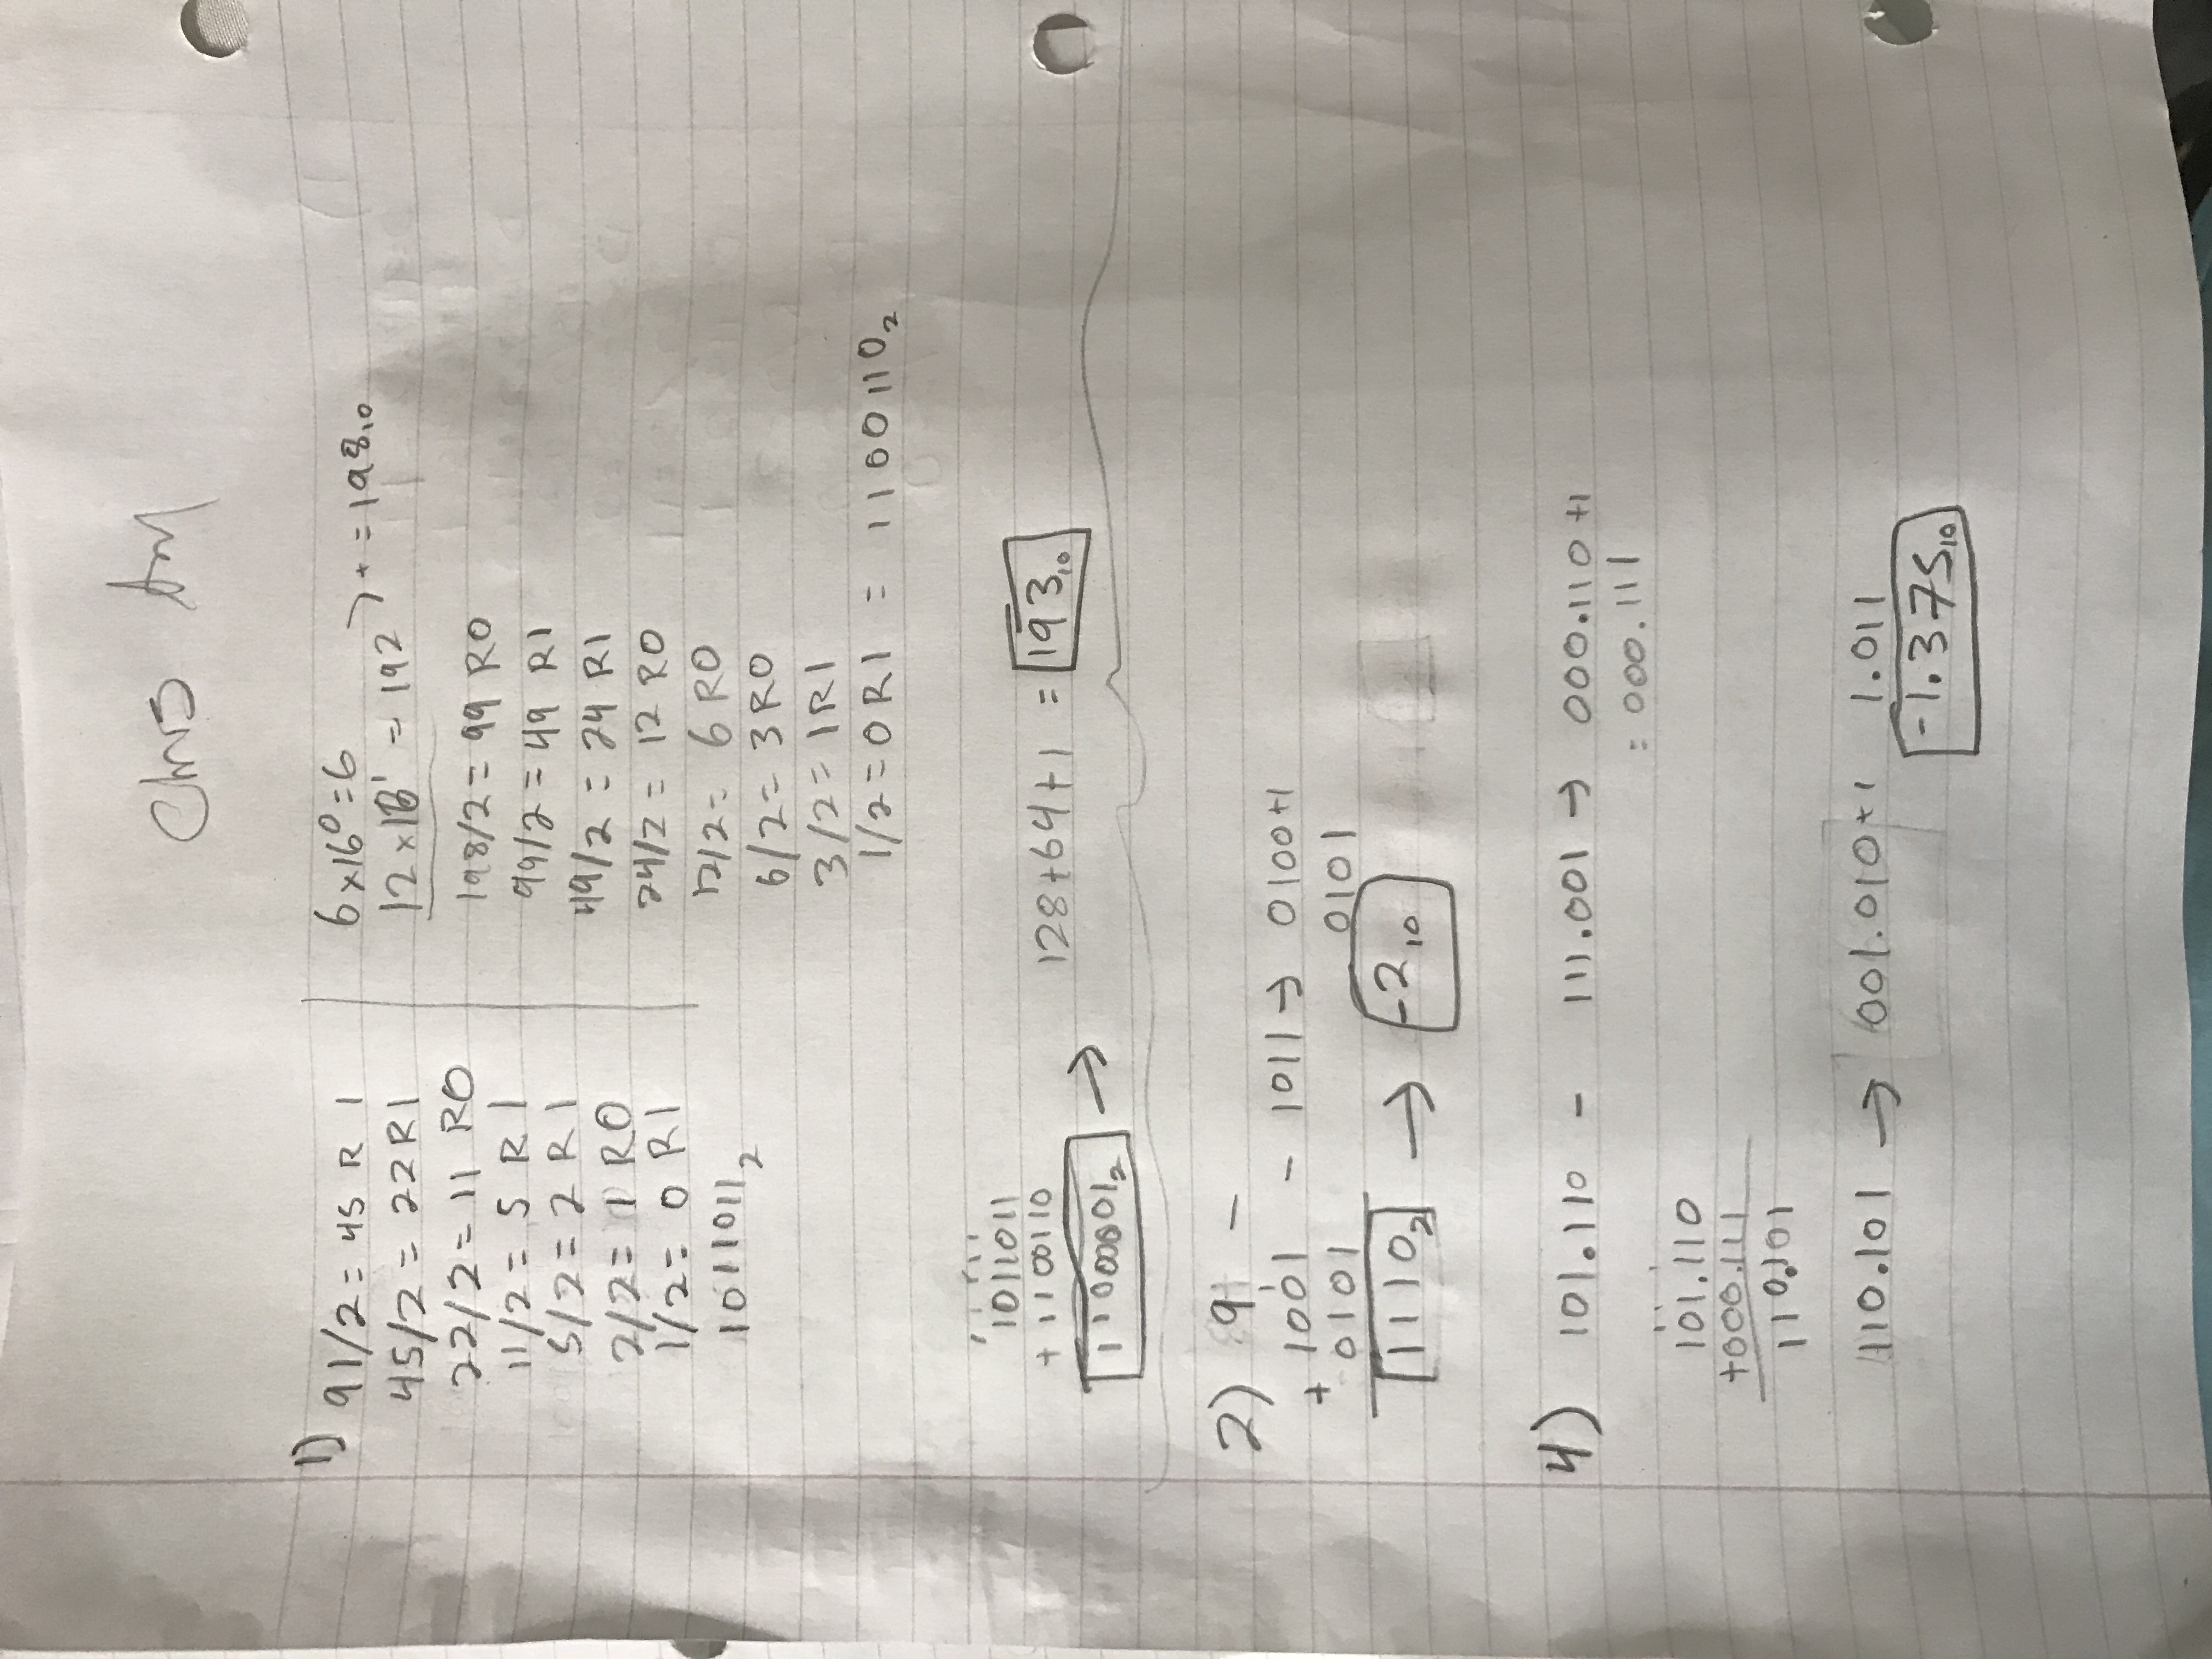 Chris
1) 91/2 = 45 R 1
45/2 = 22 R 1
22/2 = 11 R0
11/2 = 5 R 1
5/2 = 2 R 1
2/2 = 1 R0
1/2 = 0 R1
1011011₂
6×16⁰ = 6
12×16¹ = 192 > + = 198₁₀
198/2 = 99 R0
99/2 = 49 R1
49/2 = 24 R1
24/2 = 12 R0
12/2 = 6 R0
6/2 = 3 R0
3/2 = 1R1
1/2 = 0 R1 = 11000110₂
1011011
+ 1100110
11000001₂ → 128+64+1 = 193₁₀
2) 9 -
1001 - 1011 → 0100+1
+ 0101 0101
1110₂ → -2₁₀
4) 101.110 - 111.001 → 000.110 +1
= 000.111
101.110
+000.111
110.101
110.101 → 001.010+1 1.011
-1.375₁₀